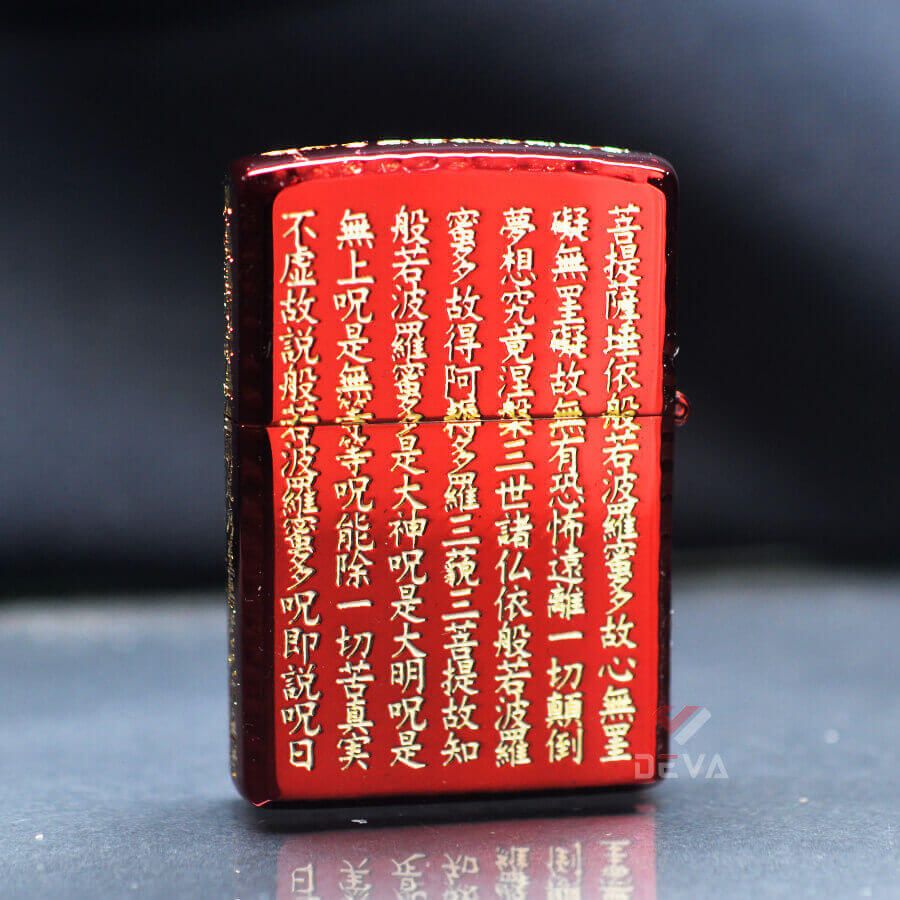 菩提薩埵依般若波羅蜜多故心無罣
礙無罣礙故無有恐怖遠離一切顛倒
夢想究竟涅槃三世諸仏依般若波羅
蜜多故得阿耨多羅三藐三菩提故知
般若波羅蜜多是大神呪是大明呪是
無上呪是無等等呪能除一切苦真実
不虚故説般若波羅蜜多呪即説呪曰
DEVA